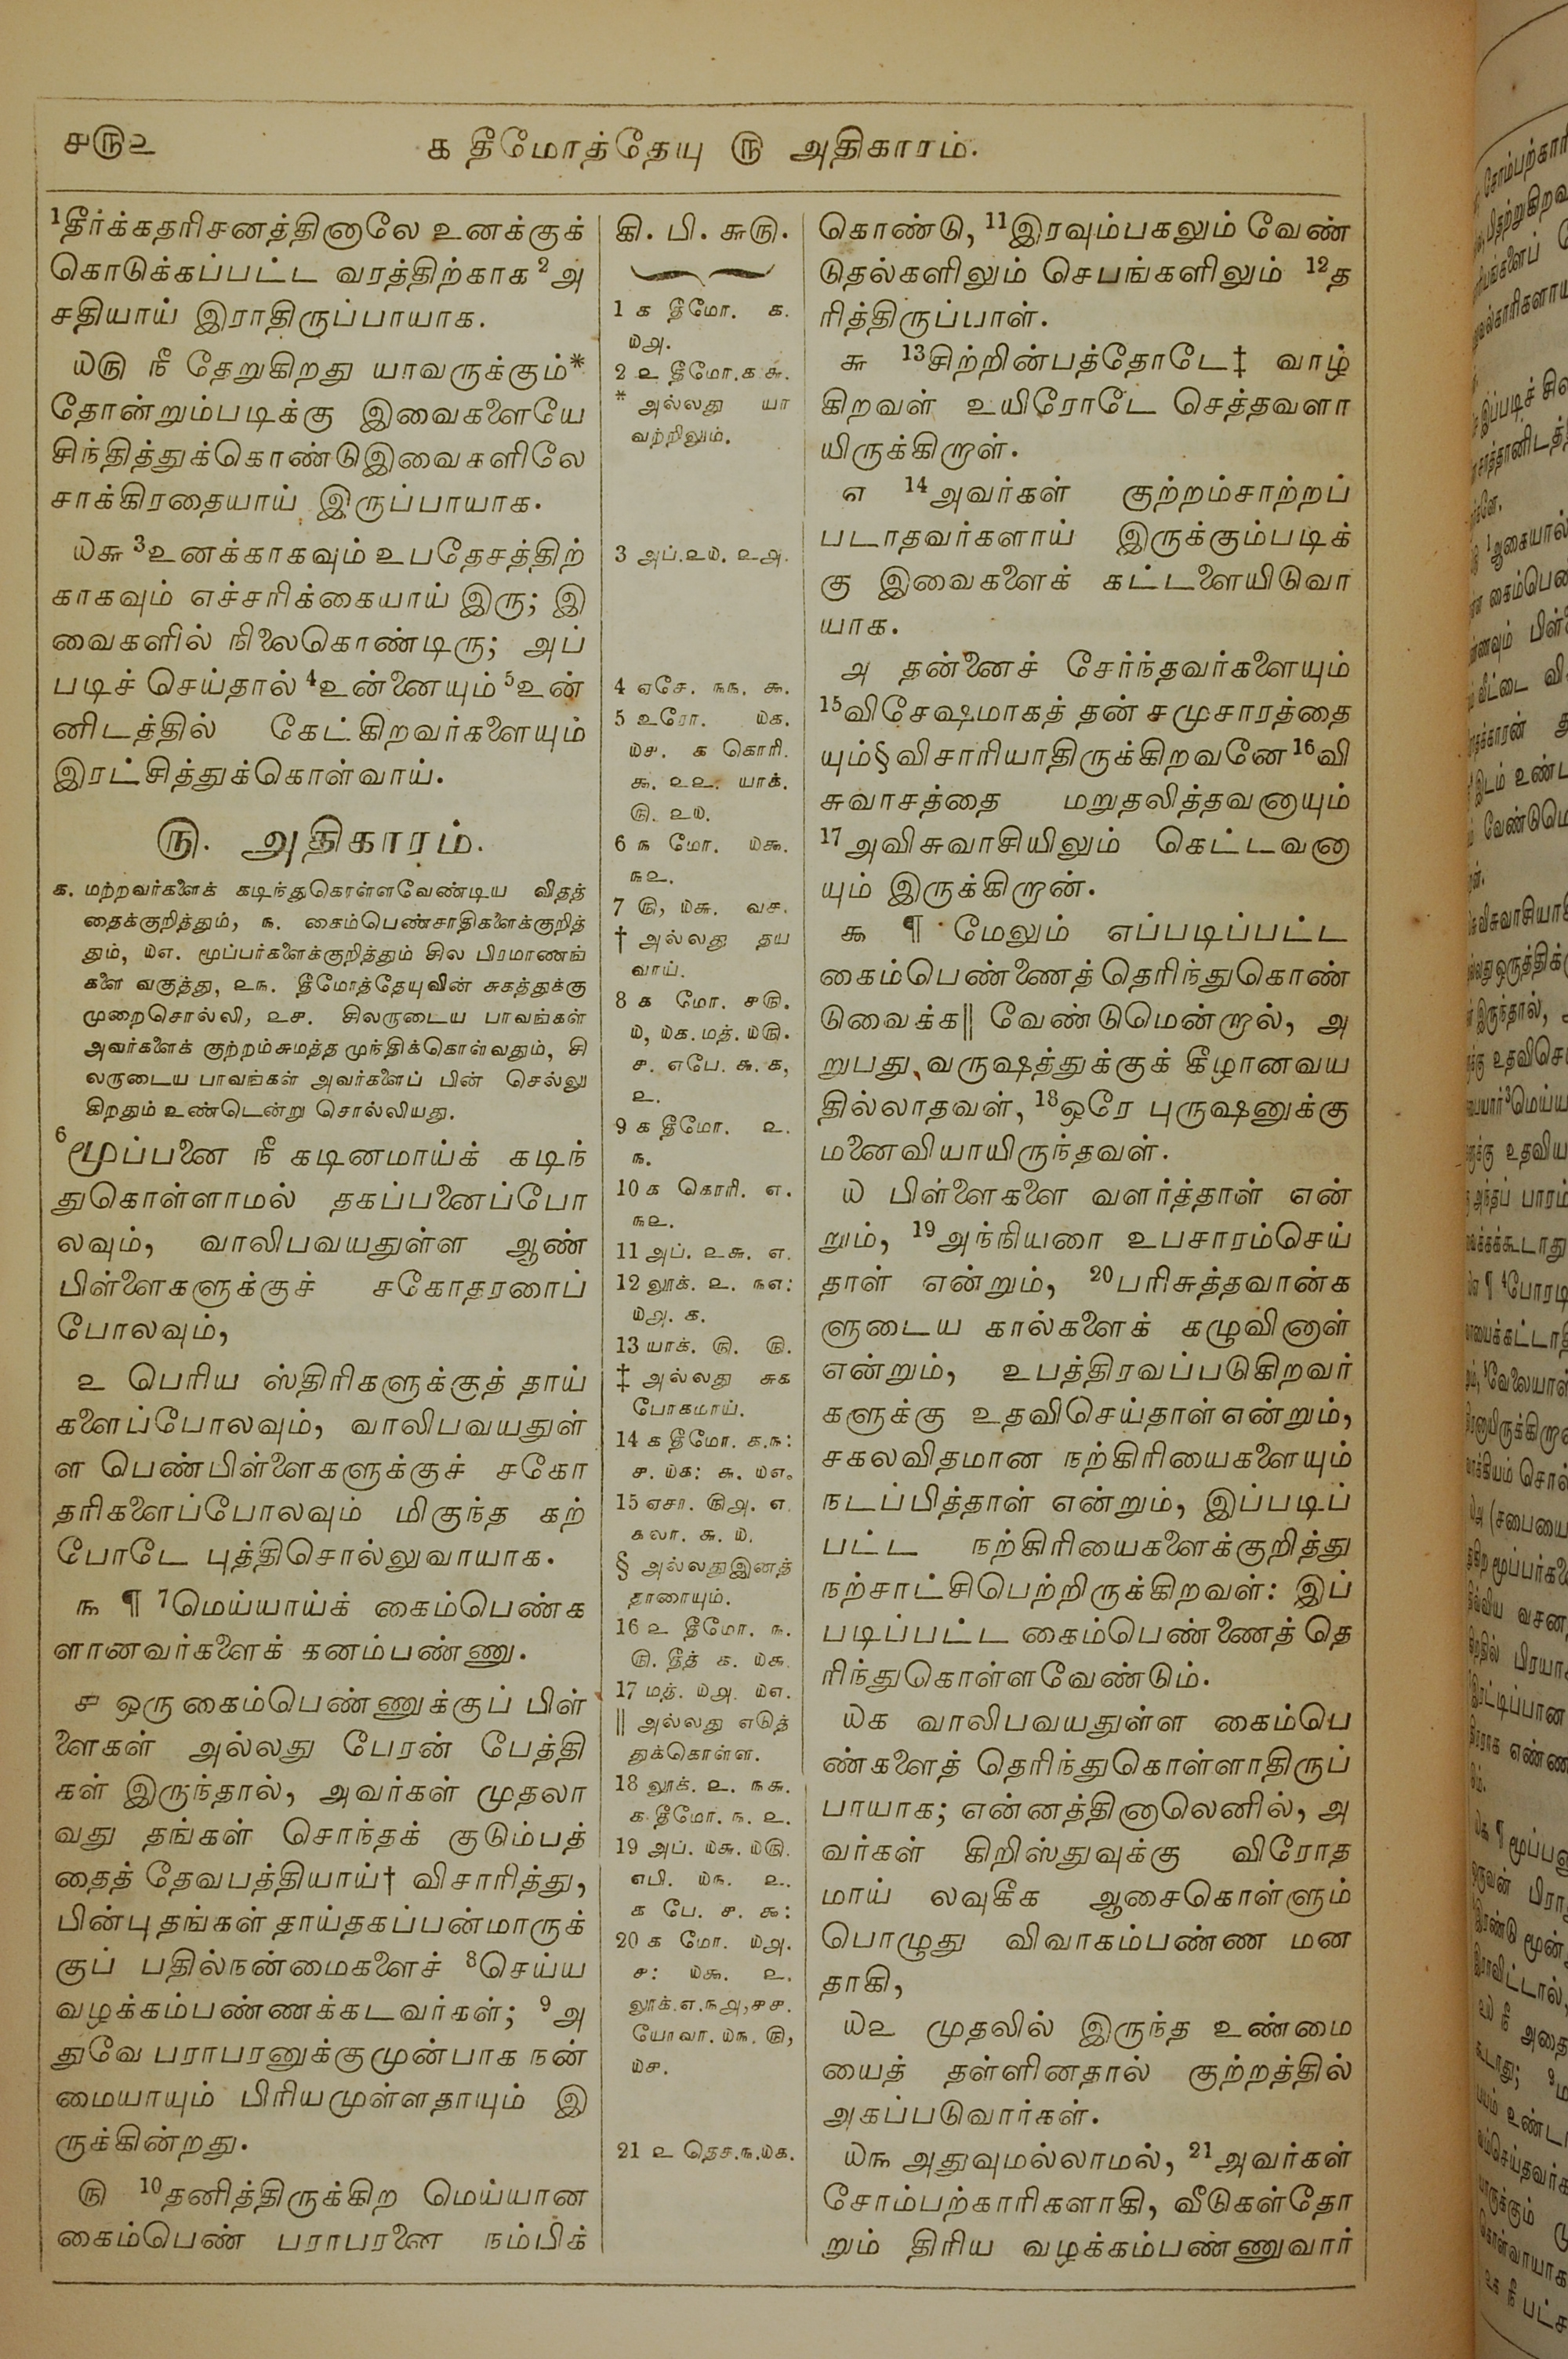 ௪௫௨
௧ தீமோத்தேயு ௫ அதிகாரம்.
1தீர்க்கதரிசனத்தினாலே உனக்குக்
கொடுக்கப்பட்ட வரத்திற்காக 2அ
சதியாய் இராதிருப்பாயாக.
௰௫ நீ தேறுகிறது யாவருக்கும்*
தோன்றும்படிக்கு இவைகளையே
சிந்தித்துக்கொண்டுஇவைகளிலே
சாக்கிரதையாய் இருப்பாயாக.
௰௬ 3உனக்காகவும் உபதேசத்திற்
காகவும் எச்சரிக்கையாய் இரு; இ
வைகளில் நிலைகொண்டிரு; அப்
படிச் செய்தால் 4உன்னையும் 5உன்
னிடத்தில் கேட்கிறவர்களையும்
இரட்சித்துக்கொள்வாய்.
௫. அதிகாரம்.
௧. மற்றவர்களைக் கடிந்துகொள்ளவேண்டிய விதத்
தைக்குறித்தும், ௩. கைம்பெண்சாதிகளைக்குறித்
தும், ௰௭. மூப்பர்களைக்குறித்தும் சில பிரமாணங்
களை வகுத்து, ௨௩. தீமோத்தேயுவின் சுகத்துக்கு
முறைசொல்லி, ௨௪. சிலருடைய பாவங்கள்
அவர்களைக் குற்றம்சுமத்த முந்திக்கொள்வதும், சி
லருடைய பாவங்கள் அவர்களைப் பின் செல்லு
கிறதும் உண்டென்று சொல்லியது.
6மூப்பனை நீ கடினமாய்க் கடிந்
துகொள்ளாமல் தகப்பனைப்போ
லவும், வாலிபவயதுள்ள ஆண்
பிள்ளைகளுக்குச் சகோதரரைப்
போலவும்,
௨ பெரிய ஸ்திரிகளுக்குத் தாய்
களைப்போலவும், வாலிபவயதுள்
ள பெண்பிள்ளைகளுக்குச் சகோ
தரிகளைப்போலவும் மிகுந்த கற்
போடே புத்திசொல்லுவாயாக.
௩ ¶ 7மெய்யாய்க் கைம்பெண்க
ளானவர்களைக் கனம்பண்ணு.
௪ ஒரு கைம்பெண்ணுக்குப் பிள்
ளைகள் அல்லது பேரன் பேத்தி
கள் இருந்தால், அவர்கள் முதலா
வது தங்கள் சொந்தக் குடும்பத்
தைத் தேவபத்தியாய்† விசாரித்து,
பின்பு தங்கள் தாய்தகப்பன்மாருக்
குப் பதில்நன்மைகளைச் 8செய்ய
வழக்கம்பண்ணக்கடவர்கள்; 9அ
துவே பராபரனுக்குமுன்பாக நன்
மையாயும் பிரியமுள்ளதாயும் இ
ருக்கின்றது.
௫ 10தனித்திருக்கிற மெய்யான
கைம்பெண் பராபரனை நம்பிக்
கி. பி. ௬௫.
1 ௧ தீமோ. ௧.
௰௮.
2 ௨ தீமோ.௧ ௬.
* அல்லது யா
வற்றிலும்.
3 அப்.௨௰. ௨௮.
4 ஏசே. ௩௩. ௯.
5 உரோ. ௰௧.
௰௪. ௧ கொரி.
௯. ௨௨. யாக்.
௫. ௨௰.
6 ௩ மோ. ௰௯.
௩௨.
7 ௫, ௰௬. வச.
† அல்லது தய
வாய்.
8 ௧ மோ. ௪௫.
௰, ௰௧. மத். ௰௫.
௪. எபே. ௬. ௧,
௨.
9 ௧ தீமோ. ௨.
௩.
10 ௧ கொரி. ௭.
௩௨.
11 அப். ௨௬. ௭.
12 லூக். ௨. ௩௭:
௰௮. ௧.
13 யாக். ௫. ௫.
‡ அல்லது சுக
போகமாய்.
14 ௧ தீமோ. ௧.௩:
௪. ௰௧: ௬. ௰௭.
15 ஏசா. ௫௮. ௭
கலா. ௬. ௰.
§ அல்லதுஇனத்
தாரையும்.
16 ௨ தீமோ. ௩.
௫. தீத் ௧. ௰௬.
17 மத். ௰௮. ௰௭.
|| அல்லது எடுத்
துக்கொள்ள.
18 லூக். ௨. ௩௬.
௧ தீமோ. ௩. ௨.
19 அப். ௰௬. ௰௫.
எபி. ௰௩. ௨.
௧ பே. ௪. ௯:
20 ௧ மோ. ௰௮.
௪: ௰௯. ௨.
லூக்.௭.௩௮,௪௪.
யோவா. ௰௩. ௫,
௰௪.
21 ௨ தெச.௩.௰௧.
கொண்டு, 11இரவும்பகலும் வேண்
டுதல்களிலும் செபங்களிலும் 12த
ரித்திருப்பாள்.
௬ 13சிற்றின்பத்தோடே‡ வாழ்
கிறவள் உயிரோடே செத்தவளா
யிருக்கிறாள்.
௭ 14அவர்கள் குற்றம்சாற்றப்
படாதவர்களாய் இருக்கும்படிக்
கு இவைகளைக் கட்டளையிடுவா
யாக.
௮ தன்னைச் சேர்ந்தவர்களையும்
15விசேஷமாகத் தன் சமுசாரத்தை
யும்§ விசாரியாதிருக்கிறவனே 16வி
சுவாசத்தை மறுதலித்தவனாயும்
17அவிசுவாசியிலும் கெட்டவனா
யும் இருக்கிறான்.
௯ ¶ மேலும் எப்படிப்பட்ட
கைம்பெண்ணைத் தெரிந்துகொண்
டுவைக்க|| வேண்டுமென்றால், அ
றுபது வருஷத்துக்குக் கீழானவய
தில்லாதவள், 18ஒரே புருஷனுக்கு
மனைவியாயிருந்தவள்.
௰ பிள்ளைகளை வளர்த்தாள் என்
றும், 19அந்நியரை உபசாரம்செய்
தாள் என்றும், 20பரிசுத்தவான்க
ளுடைய கால்களைக் கழுவினாள்
என்றும், உபத்திரவப்படுகிறவர்
களுக்கு உதவிசெய்தாள்என்றும்,
சகலவிதமான நற்கிரியைகளையும்
நடப்பித்தாள் என்றும், இப்படிப்
பட்ட நற்கிரியைகளைக்குறித்து
நற்சாட்சிபெற்றிருக்கிறவள்: இப்
படிப்பட்ட கைம்பெண்ணைத் தெ
ரிந்துகொள்ளவேண்டும்.
௰௧ வாலிபவயதுள்ள கைம்பெ
ண்களைத் தெரிந்துகொள்ளாதிருப்
பாயாக; என்னத்தினாலெனில், அ
வர்கள் கிறிஸ்துவுக்கு விரோத
மாய் லவுகீக ஆசைகொள்ளும்
பொழுது விவாகம்பண்ண மன
தாகி,
௰௨ முதலில் இருந்த உண்மை
யைத் தள்ளினதால் குற்றத்தில்
அகப்படுவார்கள்.
௰௩ அதுவுமல்லாமல், 21அவர்கள்
சோம்பற்காரிகளாகி, வீடுகள்தோ
றும் திரிய வழக்கம்பண்ணுவார்